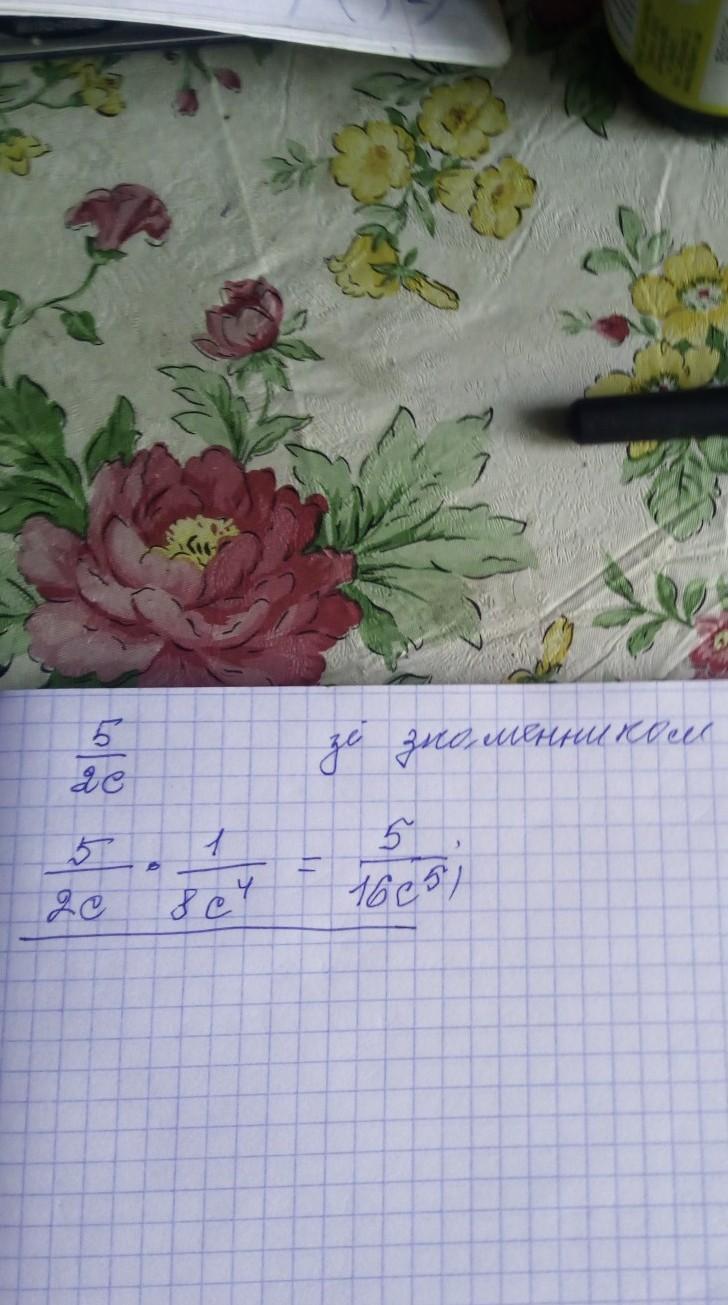 5/2c зі знаменником
5/2c · 1/8c⁴ = 5/16c⁵;